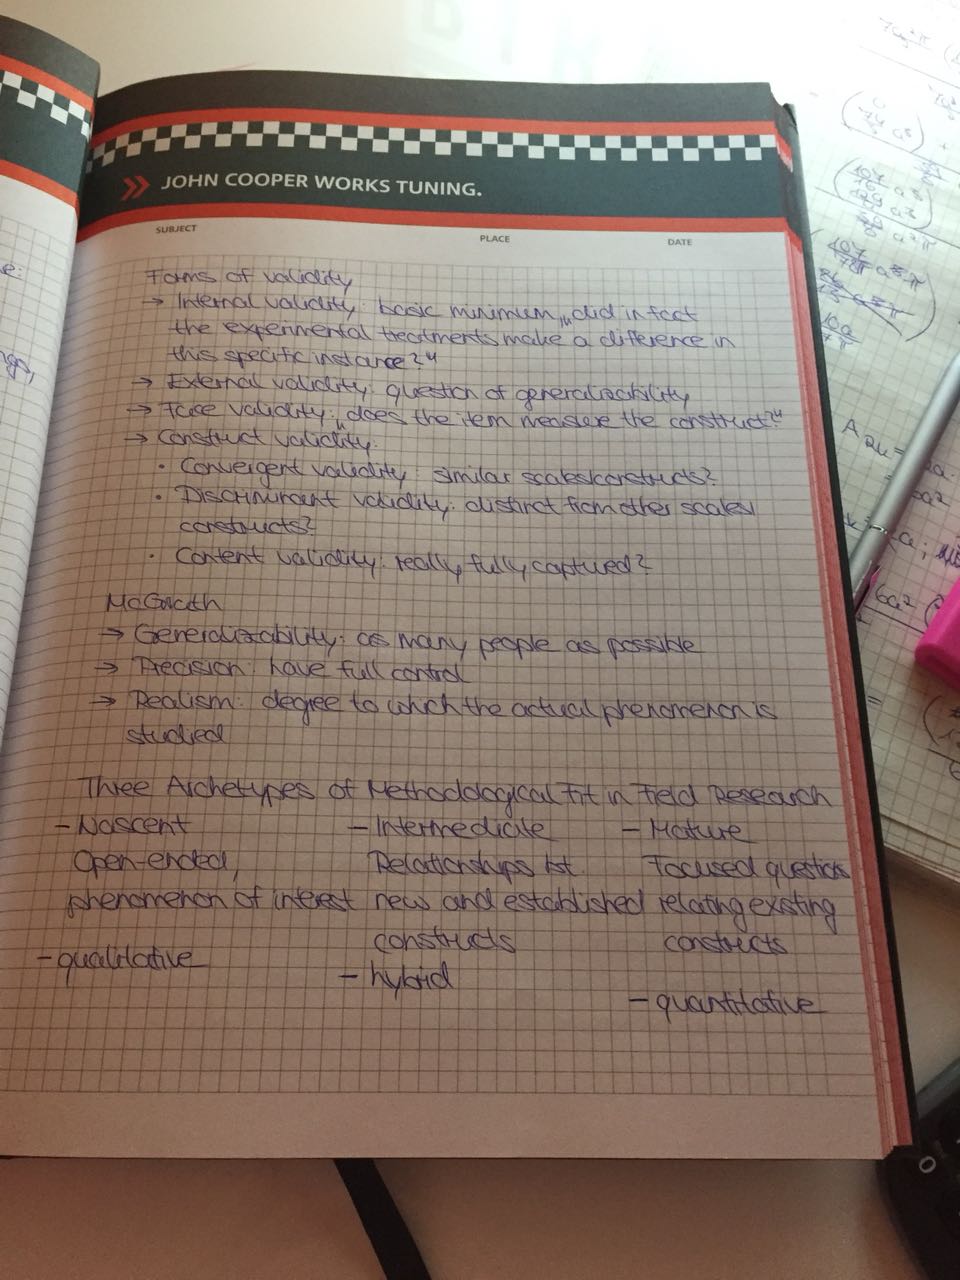 JOHN COOPER WORKS TUNING.
SUBJECT
PLACE
DATE
Forms of validity
→ Internal validity: basic minimum, „did in fact
the experimental treatments make a difference in
this specific instance?"
→ External validity: question of generalizability
→ Face validity: „does the item measure the construct?"
→ Construct validity:
• Convergent validity: similar scales/constructs?
• Discriminant validity: distinct from other scales/
constructs?
• Content validity: really fully captured?
McGrath
→ Generalizability: as many people as possible
→ Precision: have full control
→ Realism: degree to which the actual phenomenon is
studied
Three Archetypes of Methodological Fit in Field Research
- Nascent - Intermediate - Mature
Open-ended, Relationships bt. Focused questions
phenomenon of interest new and established relating existing
constructs constructs
- qualitative
- hybrid
- quantitative